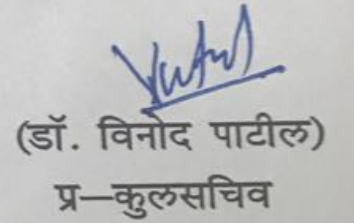 (डॉ. विनोद पाटील)
प्र—कुलसचिव